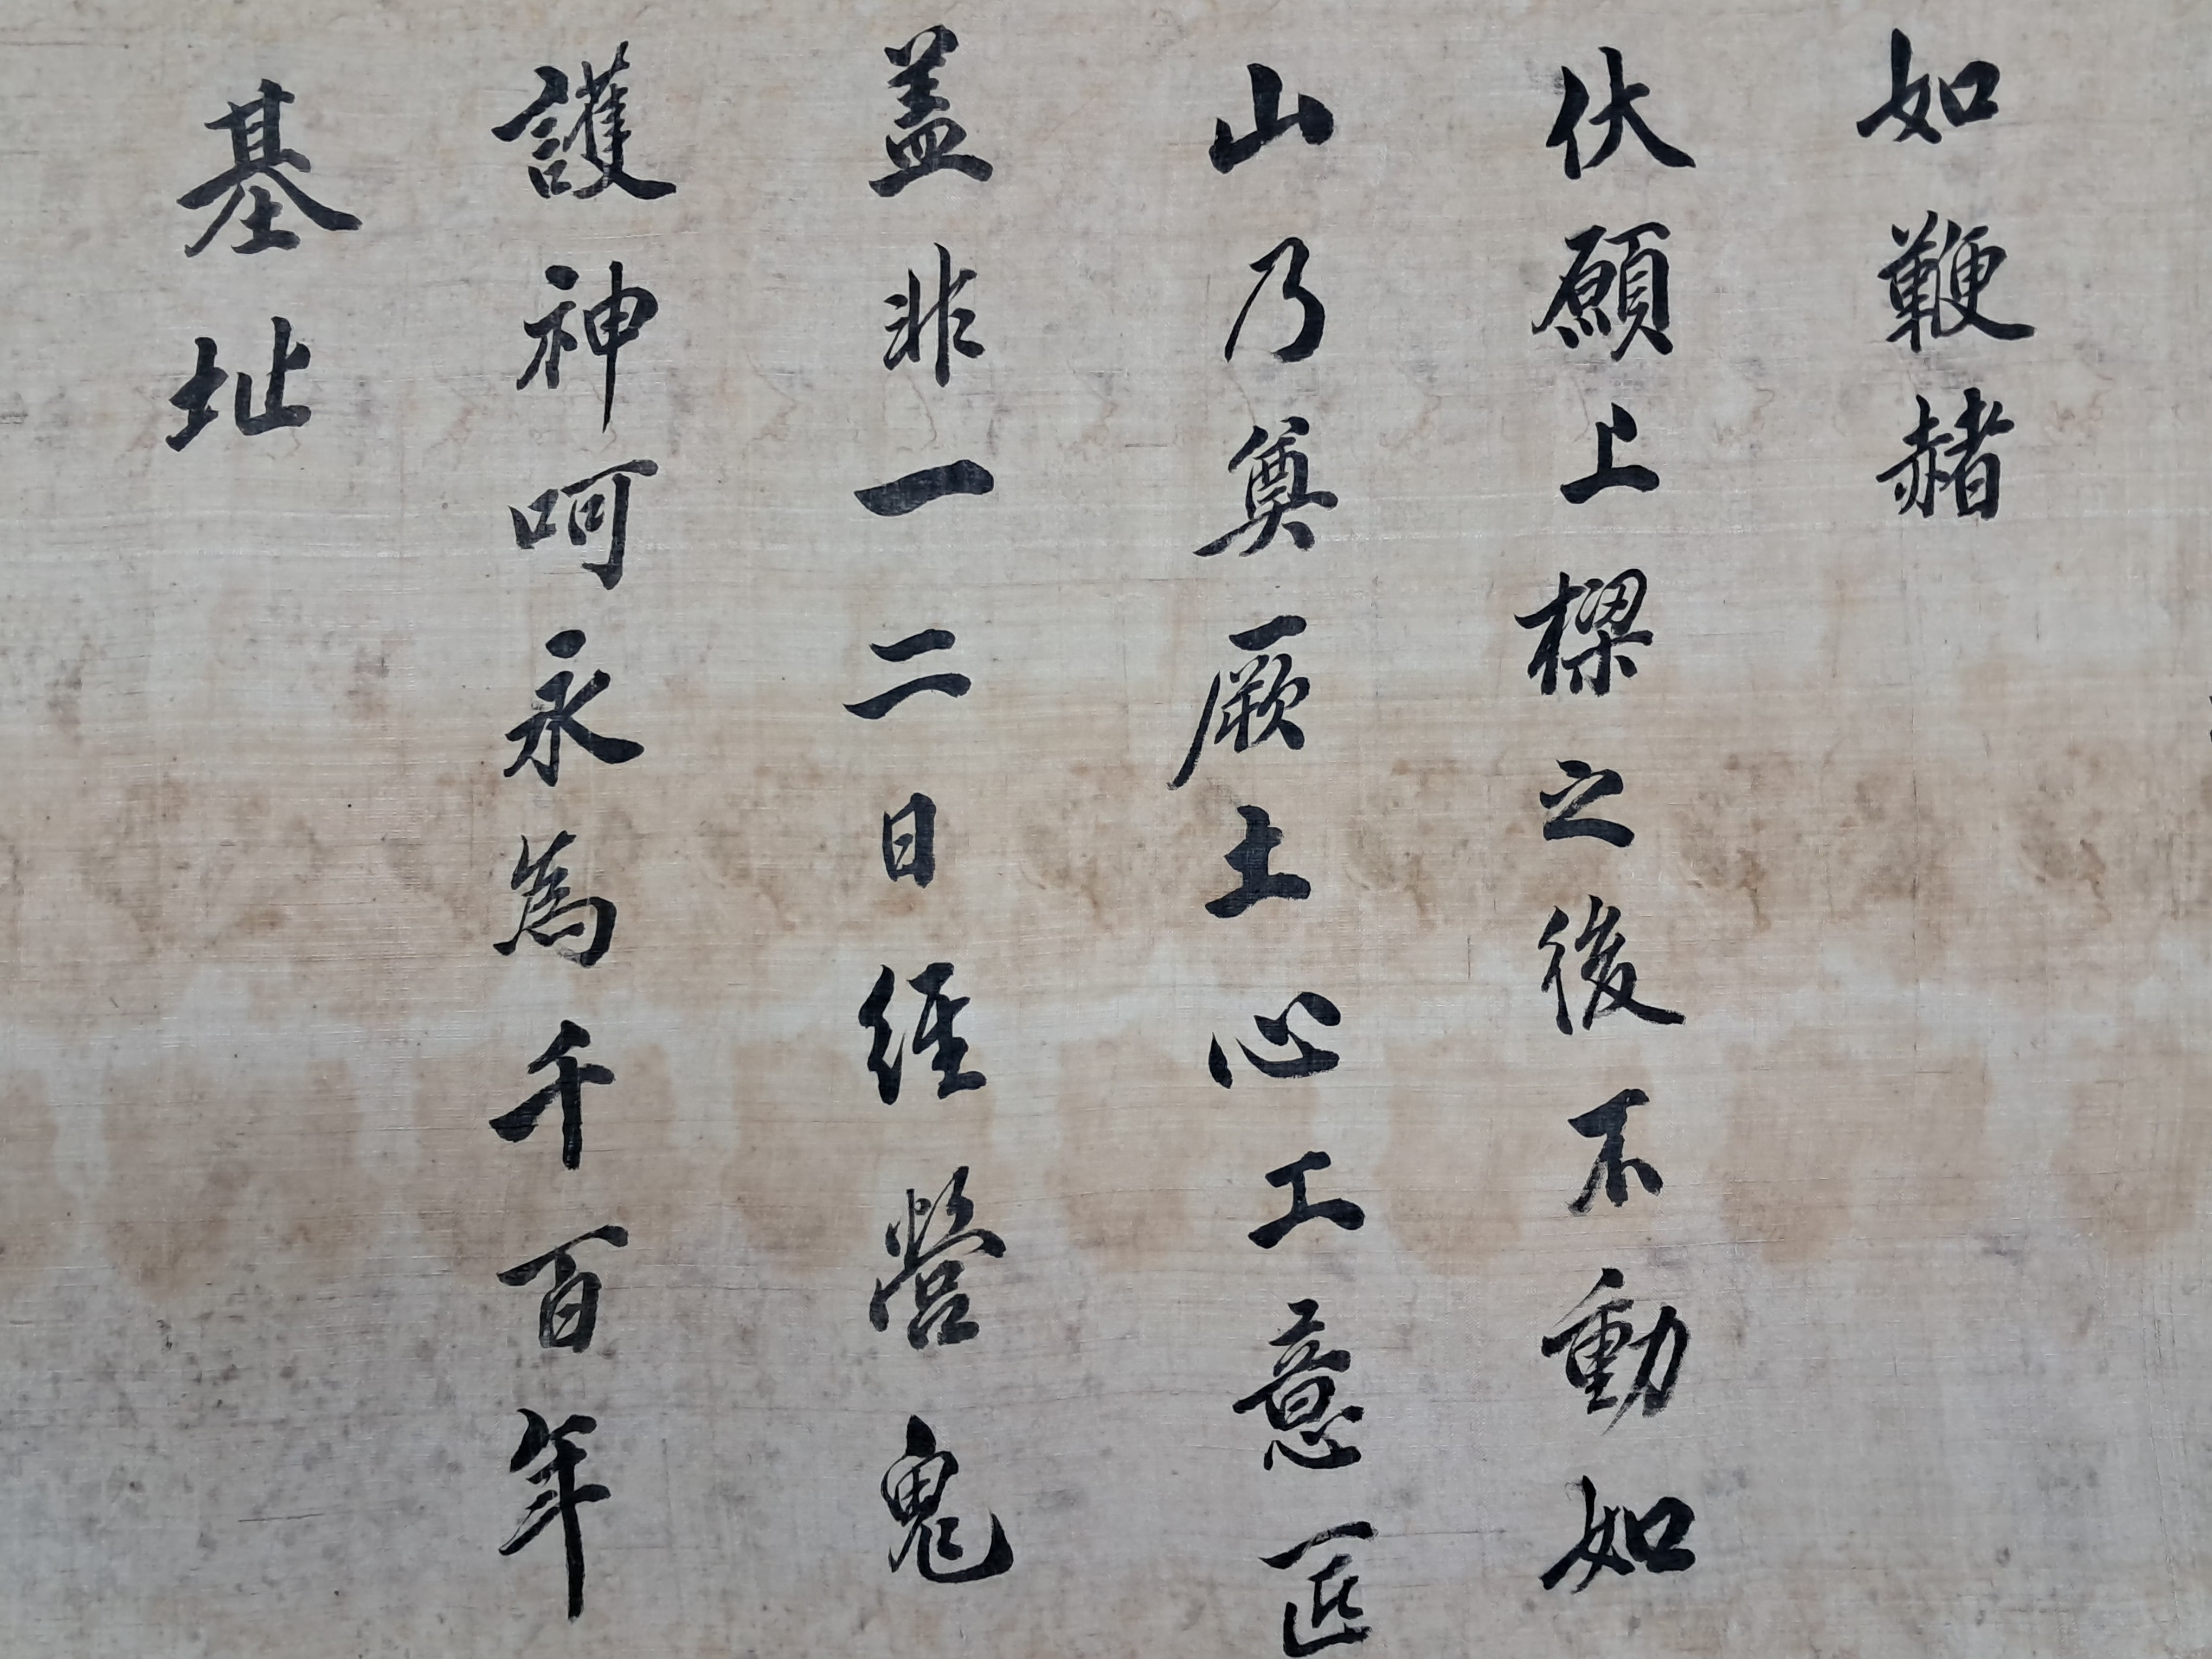 如鞭赭
伏願上樑之後不動如
山乃奠厥土心工意匠
盖非一二日經營鬼
護神呵永為千百年
基址